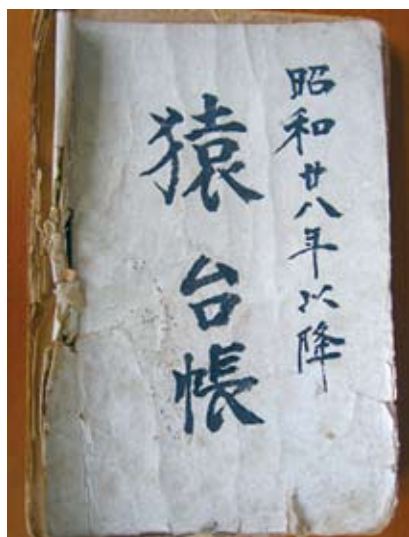 昭和廿八年以降
猿台帳